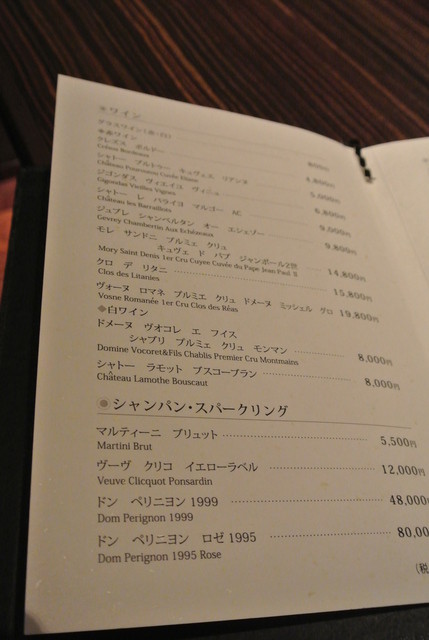 ※ワイン
グラスワイン(赤・白)
※赤ワイン
クレボス ボルドー
Crebos Bordeaux
4,800円
シャトー プルトゥー キュヴェス リアンヌ
5,000円
ジゴンダス ヴィエイユ ヴィニュ
Gigondas Vieilles Vignes
6,800円
シャトー レ バライヨ マルゴー AC
Château les Barraillots
9,000円
ジュブレ シャンベルタン オー エシェゾー
Gevrey Chambertin Aux Echezeaux
9,800円
モレ サンドニ プルミェ クリュ
キュヴェ ド パプ ジャンポール2世
Mory Saint Denis 1er Cru Cuyee Cuvée du Pape Jean Paul II
14,800円
クロ デ リタニ
Clos des Litanies
15,800円
ヴォーヌ ロマネ プルミエ クリュ ドメーヌ ミッシェル グロ 19,800円
Vosne Romanée 1er Cru Clos des Réas
※白ワイン
ドメーヌ ヴオコレ エ フイス
シャブリ プルミェ クリュ モンマン 8,000円
Domine Vocoret&Fils Chablis Premier Cru Montmains
シャトー ラモット ブスコーブラン 8,000円
Château Lamothe Bouscaut
シャンパン・スパークリング
マルティーニ ブリュット 5,500円
Martini Brut
ヴーヴ クリコ イエローラベル 12,000円
Veuve Clicquot Ponsardin
ドン ペリニヨン 1999 48,000
Dom Perignon 1999
ドン ペリニヨン ロゼ 1995 80,00
Dom Perignon 1995 Rose
(税